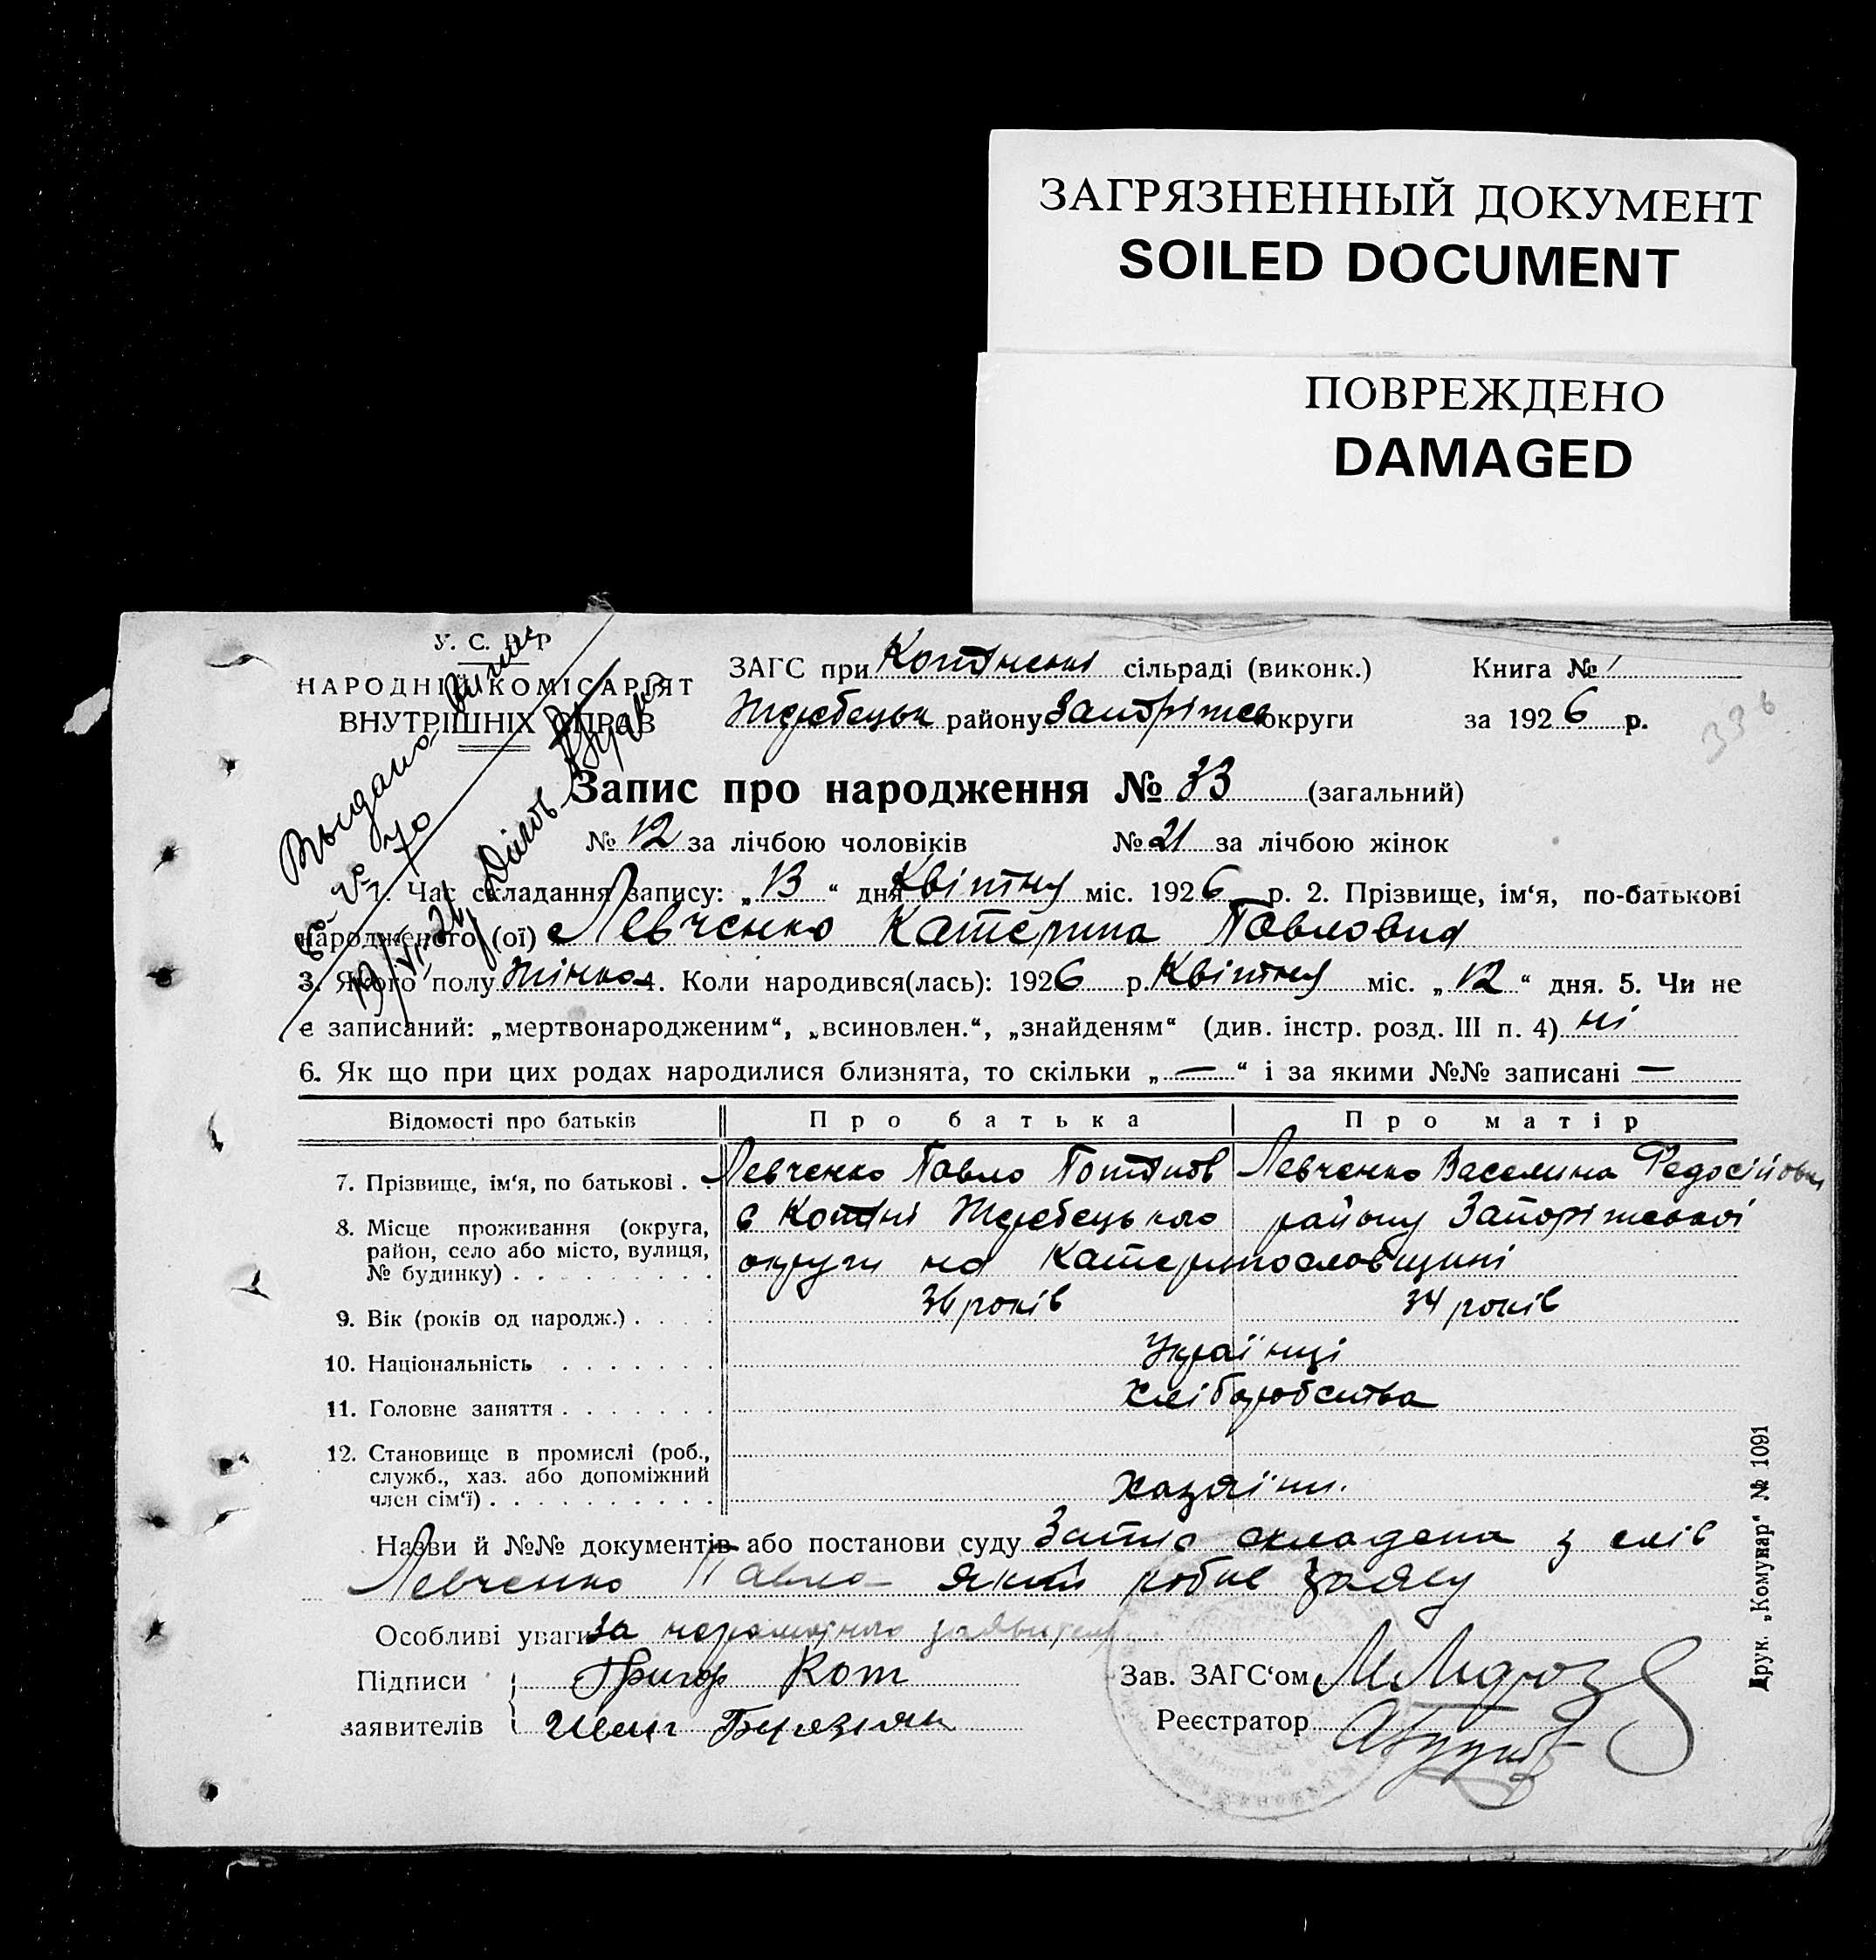 ЗАГРЯЗНЕННЫЙ ДОКУМЕНТ
SOILED DOCUMENT
ПОВРЕЖДЕНО
DAMAGED
У. С. Р Р
НАРОДНІЙ КОМІСАРІЯТ
ВНУТРІШНІХ СПРАВ
ЗАГС при сільраді (виконк.) Книга № 1
району Запоріжс округи за 1926 р.
336
Запис про народження № 33 (загальний)
№ 12 за лічбою чоловіків № 21 за лічбою жінок
1. Час складання запису: „13“ дня Квітня міс. 1926 р. 2. Прізвище, ім‘я, по-батькові
народженого (ої) Левченко Катерина Павловна
3. Якого полу жінка 4. Коли народився(лась): 1926 р. Квітня міс. „12“ дня. 5. Чи не
є записаний: „мертвонародженим“, „всиновлен.“, „знайденям“ (див. інстр. розд. III п. 4) ні
6. Як що при цих родах народилися близнята, то скільки „—“ і за якими №№ записані —
Відомості про батьків Про батька Про матір
7. Прізвище, ім‘я, по батькові . . Левченко Павло Левченко Василина Федосіїовна
8. Місце проживання (округа, район, село або місто, вулиця, № будинку) . . . . . . . . . с району Запоріжської
округи на Катеринославщині
9. Вік (років од народж.) . . . . 36 років 34 років
10. Національність . . . . . . . Українці
11. Головне заняття . . . . . . . хліборобства
12. Становище в промислі (роб., служб., хаз. або допоміжний член сім‘ї) . . . . . . . . . . хазяїни.
Назви й №№ документів або постанови суду Запис складена з слів
Левченко Павла який робив заяву
Особливі уваги за
Підписи заявителів Григор Кот
Иван
Зав. ЗАГС‘ом
Реєстратор
Друк. „Комунар“ № 1091